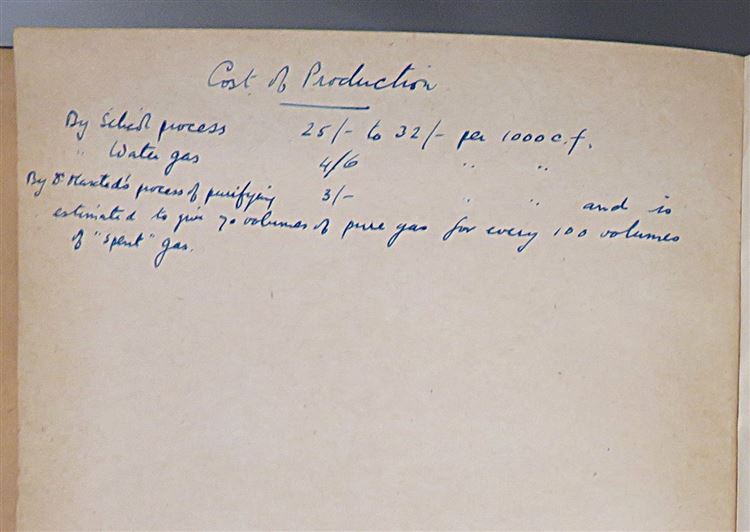 Cost of Production
By Silicol process 25/- to 32/- per 1000 c.f.
" Water gas 4/6 " "
By Dr Maxted's process of purifying 3/- " " and is
estimated to give 70 volumes of pure gas for every 100 volumes
of "spent" gas.